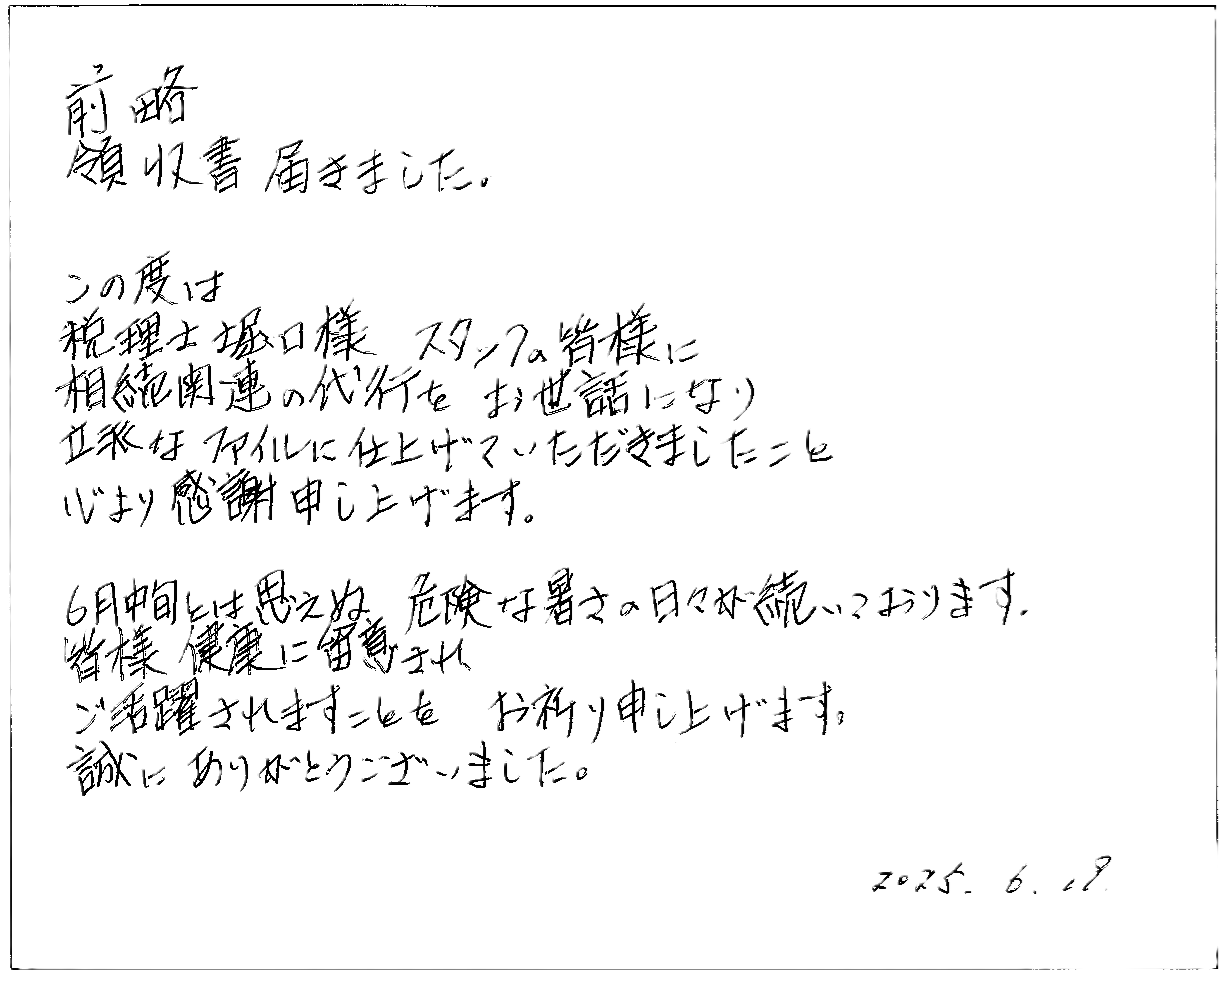 前略
領収書 届きました。
この度は
税理士堀口様 スタッフの皆様に
相続関連の代行を お世話になり
立派な ファイルに仕上げていただきましたこと
心より感謝申し上げます。
6月中旬とは思えぬ 危険な暑さの日々が続いております.
皆様 健康に留意され
ご活躍されますことを お祈り申し上げます。
誠に ありがとうございました。
2025. 6. 19.